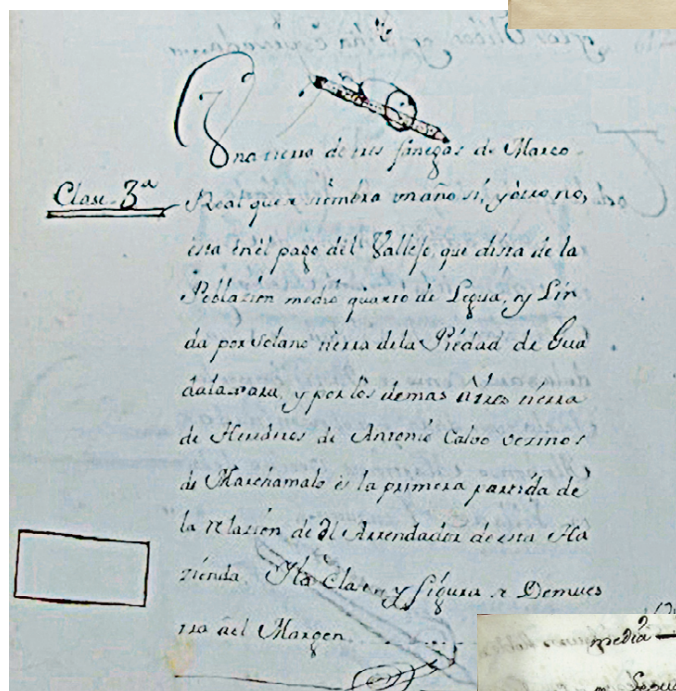 Una tierra de tres fanegas de Marco
Clase 3ª
Real que se siembra un año si, y otro no,
esta en el pago del Vallejo, que dista de la
Poblazion medio quarto de Legua, y Lin
da por Solano tierra de la Piedad de Gua
dalaxara, y por los demas Aires tierra
de Herederos de Antonio Calvo vesinos
de Marchamalo es la primera partida de
la relasion de el Arrendador de esta Ha
zienda. Su Clase y figura se Demues
tra al Margen
media